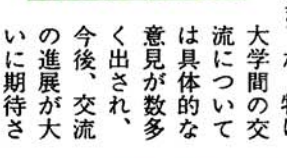 大学間の交
流について
は具体的な
意見が数多
く出され、
今後、交流
の進展が大
いに期待さ